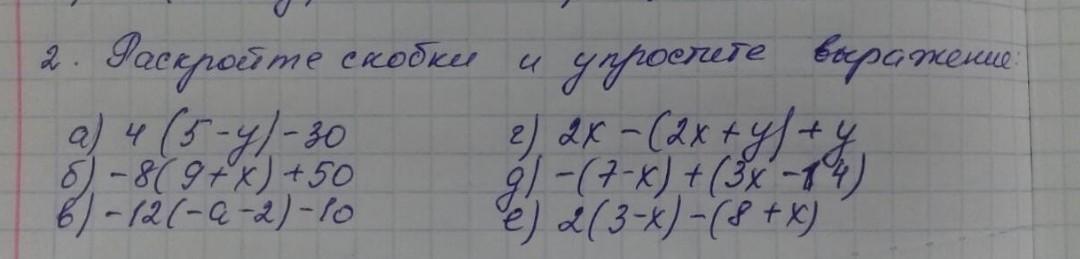 2. Раскройте скобки и упростите выражение:
а) 4 (5-y)-30
б) -8(9+x)+50
в) -12(-a-2)-10
г) 2x-(2x+y)+y
д) -(7-x)+(3x-14)
е) 2(3-x)-(8+x)